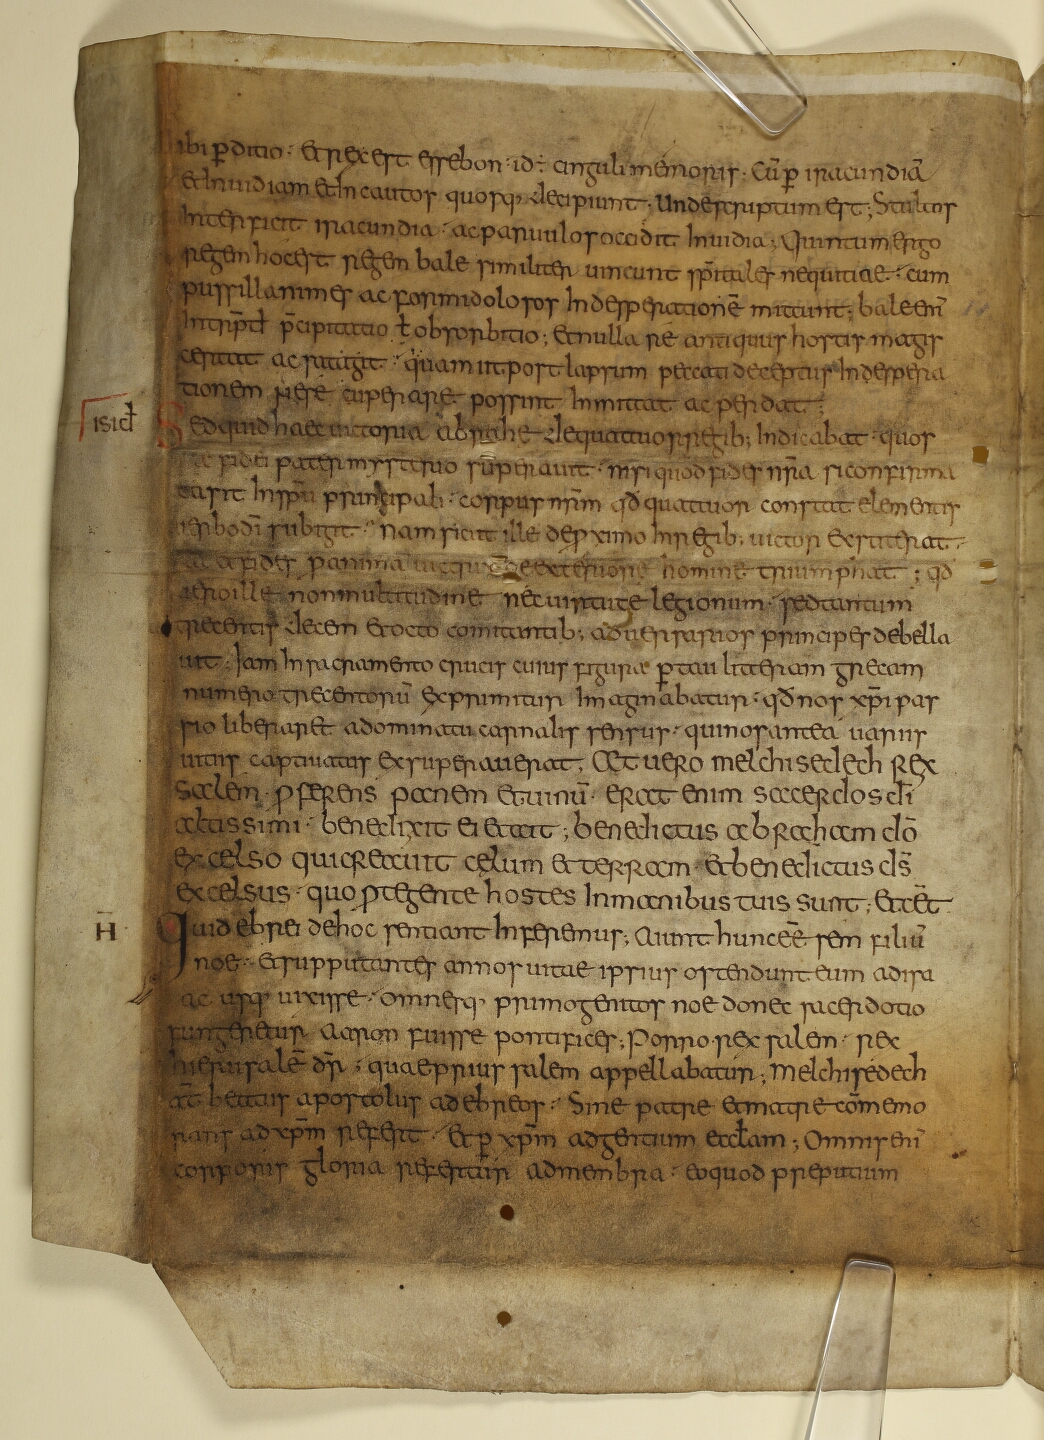 ibi ꝑditio · et rex est essebon · id ÷ cinguli memoris · Cū ꝑ iracundiā
et Inuidiam et Incautos quosq; decipiunt; Unde scriptum est; Stultos
Interficit iracundia · ac paruulos occidit Inuidia; Quintum ergo
regem hoc est regem bale similiter uincunt sp̄itales nequitiae · cum
pusillanimes ac formidolosos In desperationē mittunt; bale eni̅
Intrp̄t̄ p̄cipitatio ł obsorbitio; et nulla re antiquus hostis magis
certat ac satigit · quam ut post lapsum peccati deceptus In despera
tionem possint Inmittat ac perdat;
isid̄
Sed quid haec uictoria abrahę de quattuor regib; Indicabat · quos
fidei pater mysterio superauit · nisi quod fides nr̄a si confirma
In sp̄u principali · corpus nr̄m qd̄ quattuor constat elementis
subigit · Nam sicut ille de pximo In regib; uictor extiterat ·
fides p anima de exteriore homine triumphat ; qd̄
uero ille non multitudine nec uirtute legionum · sed tantum
trecentis decem et octo comitantib; aduersarios principes debella
uit · Iam In sacramento crucis cuius figura ꝑ tau litteram grecam
numero trecentorū exprimitur Imaginabatur · qd̄ nos xp̄i pas
sio liberaret a dominatu carnalis sensus · qui nos antea uariis
uitiis captiuatos exsuperauerat; Æt uero melchisedech rex
Salem · ꝓferens panem et uinū · erat enim sacerdos dī
altissimi · benedixit ei et ait; benedictus abraham dō
excelso qui creauit cęlum et terram · et benedictus ds̄
excelsus · quo ꝓtegente hostes In manibus tuis sunt; et cet̄
H̄
Quid ebrei de hoc sentiant Inferemus; Aiunt hunc eē̄ sem filiū
noe · et supputantes annos uitae ipsius ostendunt eum ad isa
ac usq; uixisse · omnesq; primogenitos noe donec sacerdotio
fungeretur aaron fuisse pontifices; Porro · rex salem · rex
hierusalē dr̄ · quae prius salem appellabatur; melchisedech
aūt beatus apostolus ad ebreos · Sine patre et matre cōmemo
rans ad xp̄m refert · et ꝑ xp̄m ad gentium eccłam; Omnis eni̅
corporis gloria refertur ad membra · eo quod preputium